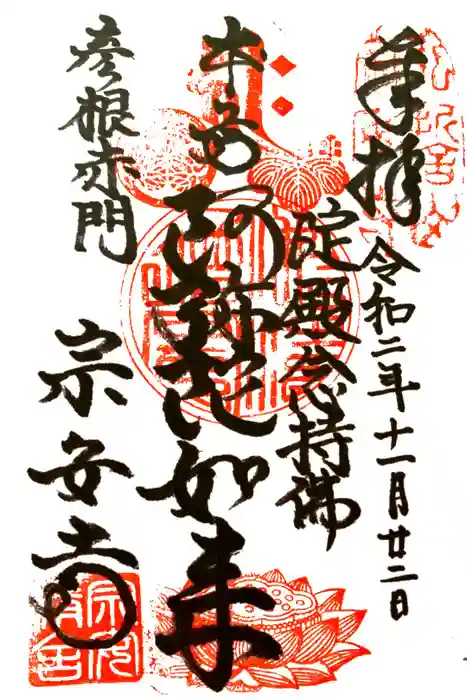 奉拝
令和二年十一月廿二日
淀殿念持佛
本尊阿弥陀如来
彦根赤門
宗安寺